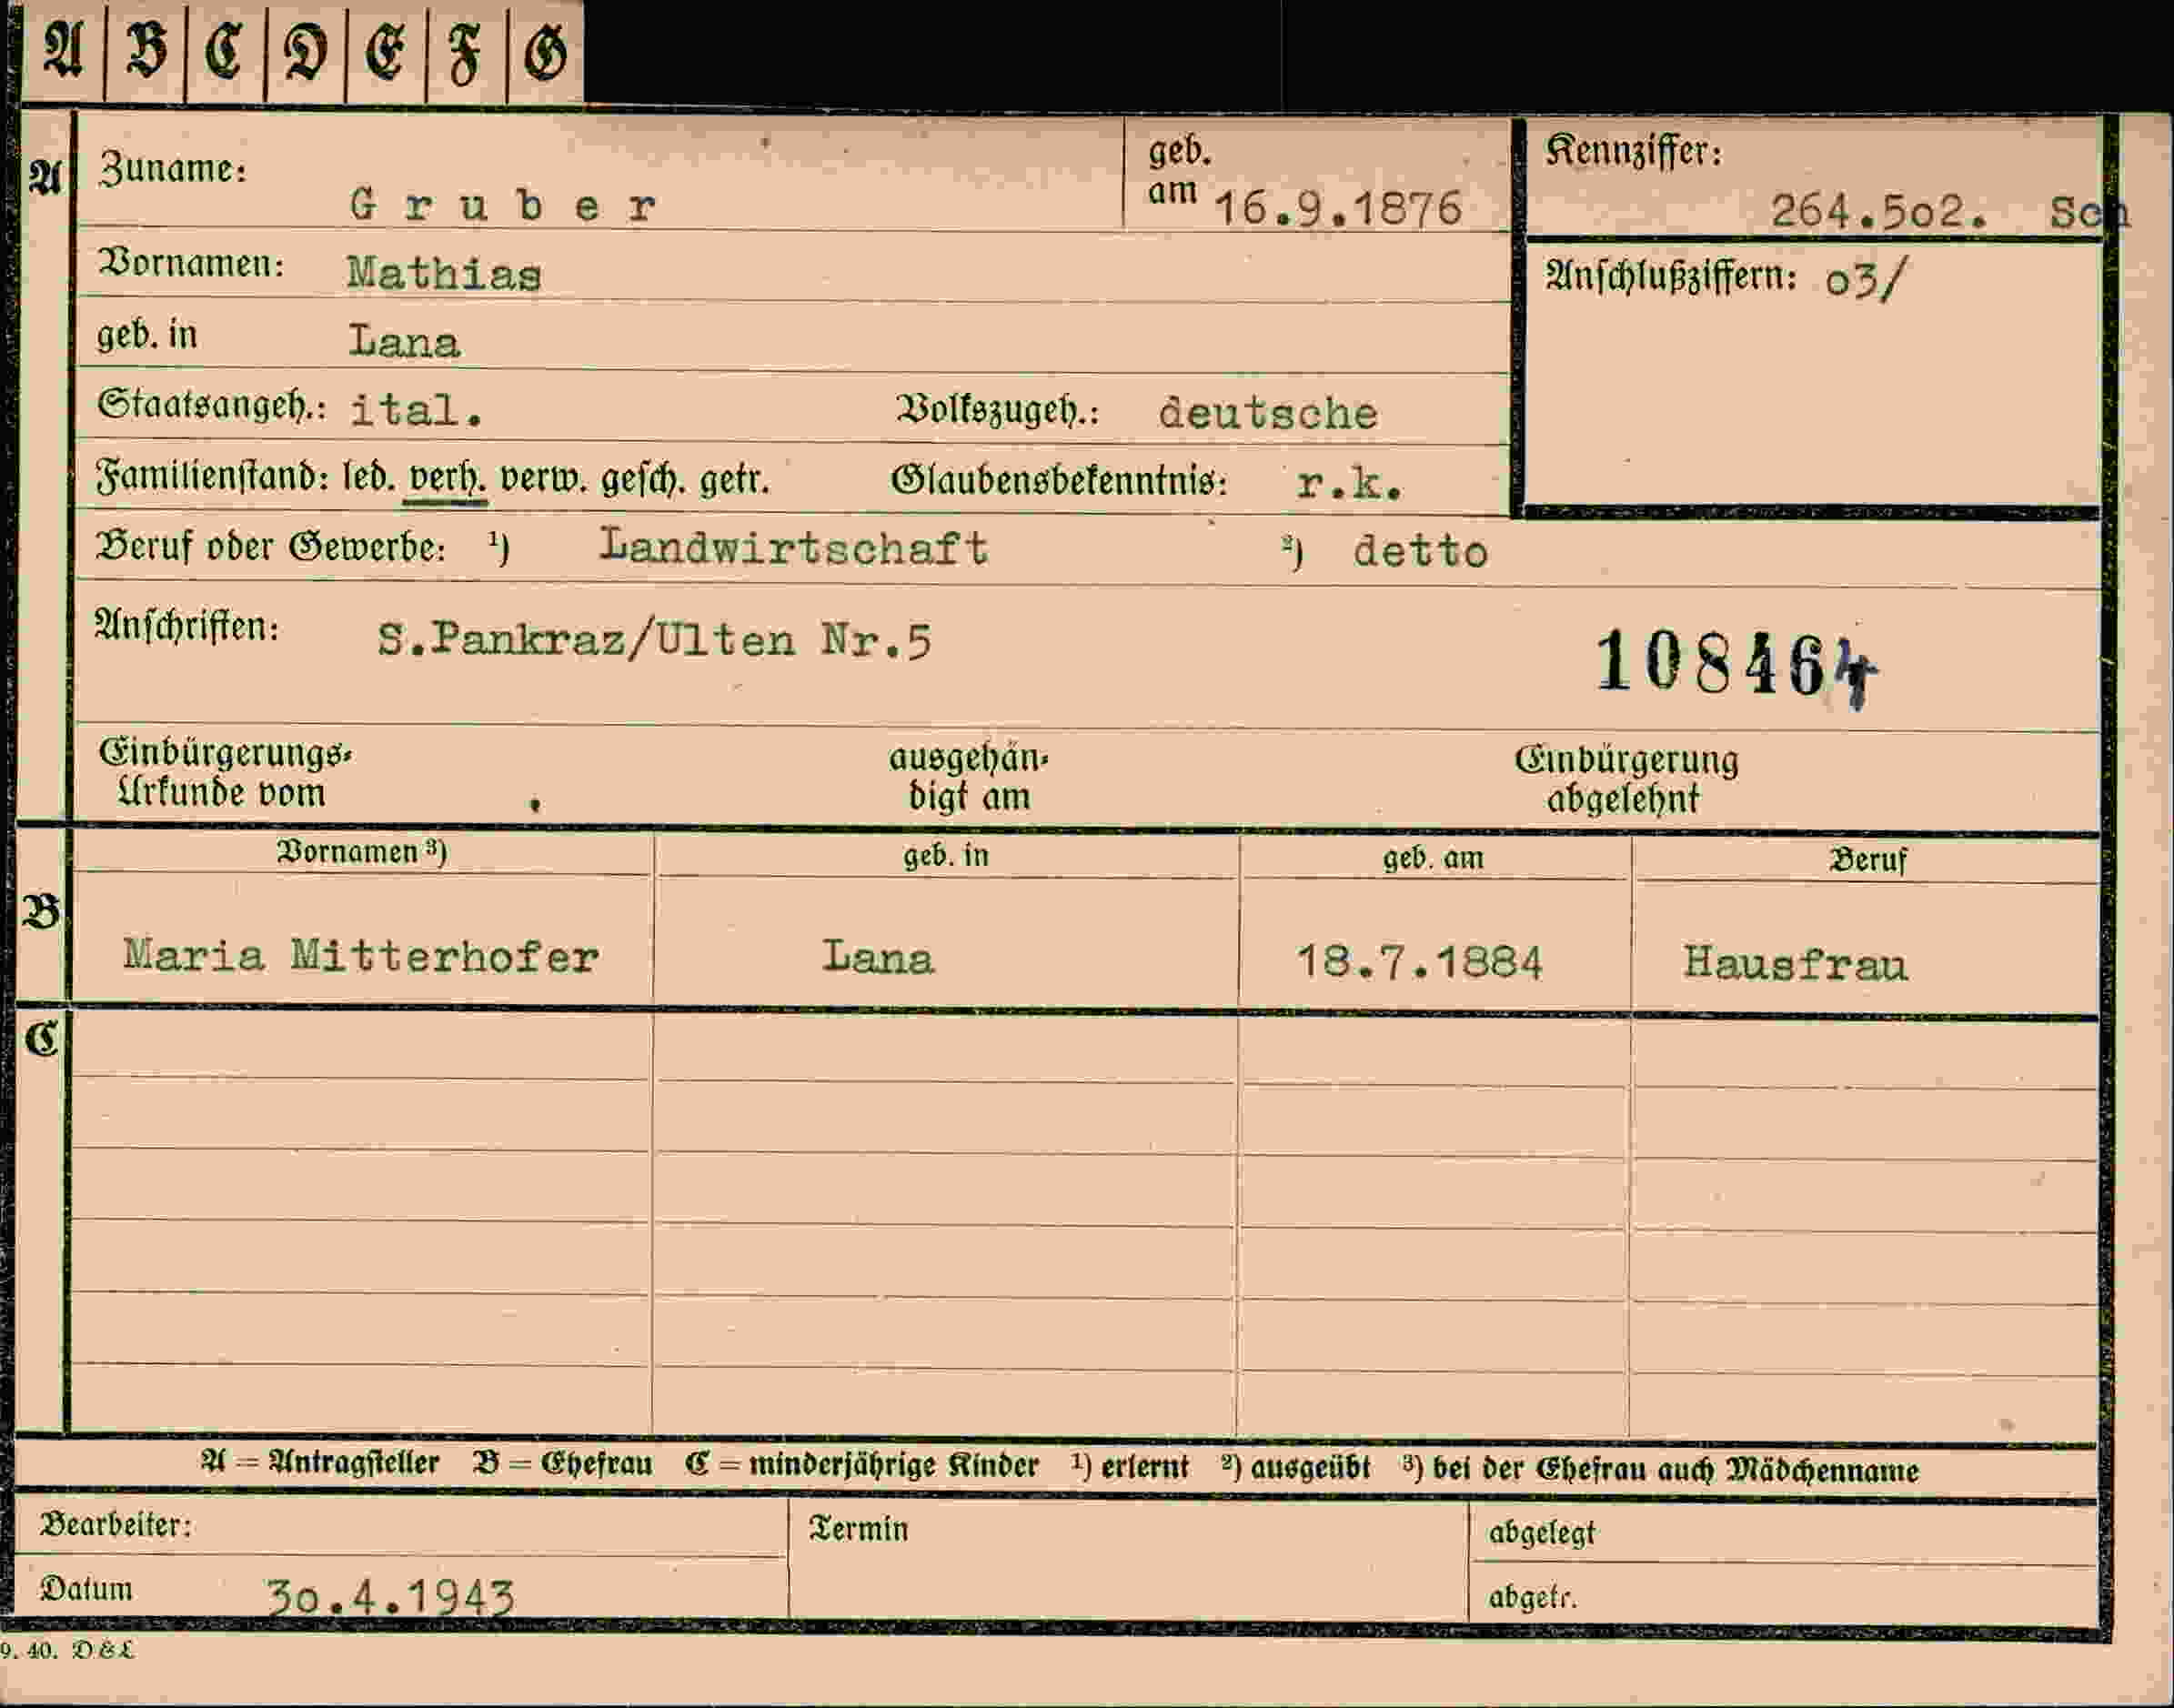 A B C D E F G
A Zuname: Gruber geb. am 16.9.1876 Kennziffer: 264.5o2. Sch
Vornamen: Mathias Anschlußziffern: o3/
geb. in Lana
Staatsangeh.: ital. Volkszugeh.: deutsche
Familienstand: led. verh. verw. gesch. getr. Glaubensbekenntnis: r.k.
Beruf oder Gewerbe: ¹) Landwirtschaft ²) detto
Anschriften: S.Pankraz/Ulten Nr.5 108464
Einbürgerungs- ausgehän- Einbürgerung
Urkunde vom digt am abgelehnt
Vornamen ³) geb. in geb. am Beruf
B Maria Mitterhofer Lana 18.7.1884 Hausfrau
C
A = Antragsteller B = Ehefrau C = minderjährige Kinder ¹) erlernt ²) ausgeübt ³) bei der Ehefrau auch Mädchenname
Bearbeiter: Termin abgelegt
Datum 3o.4.1943 abgetr.
9. 40. D & L